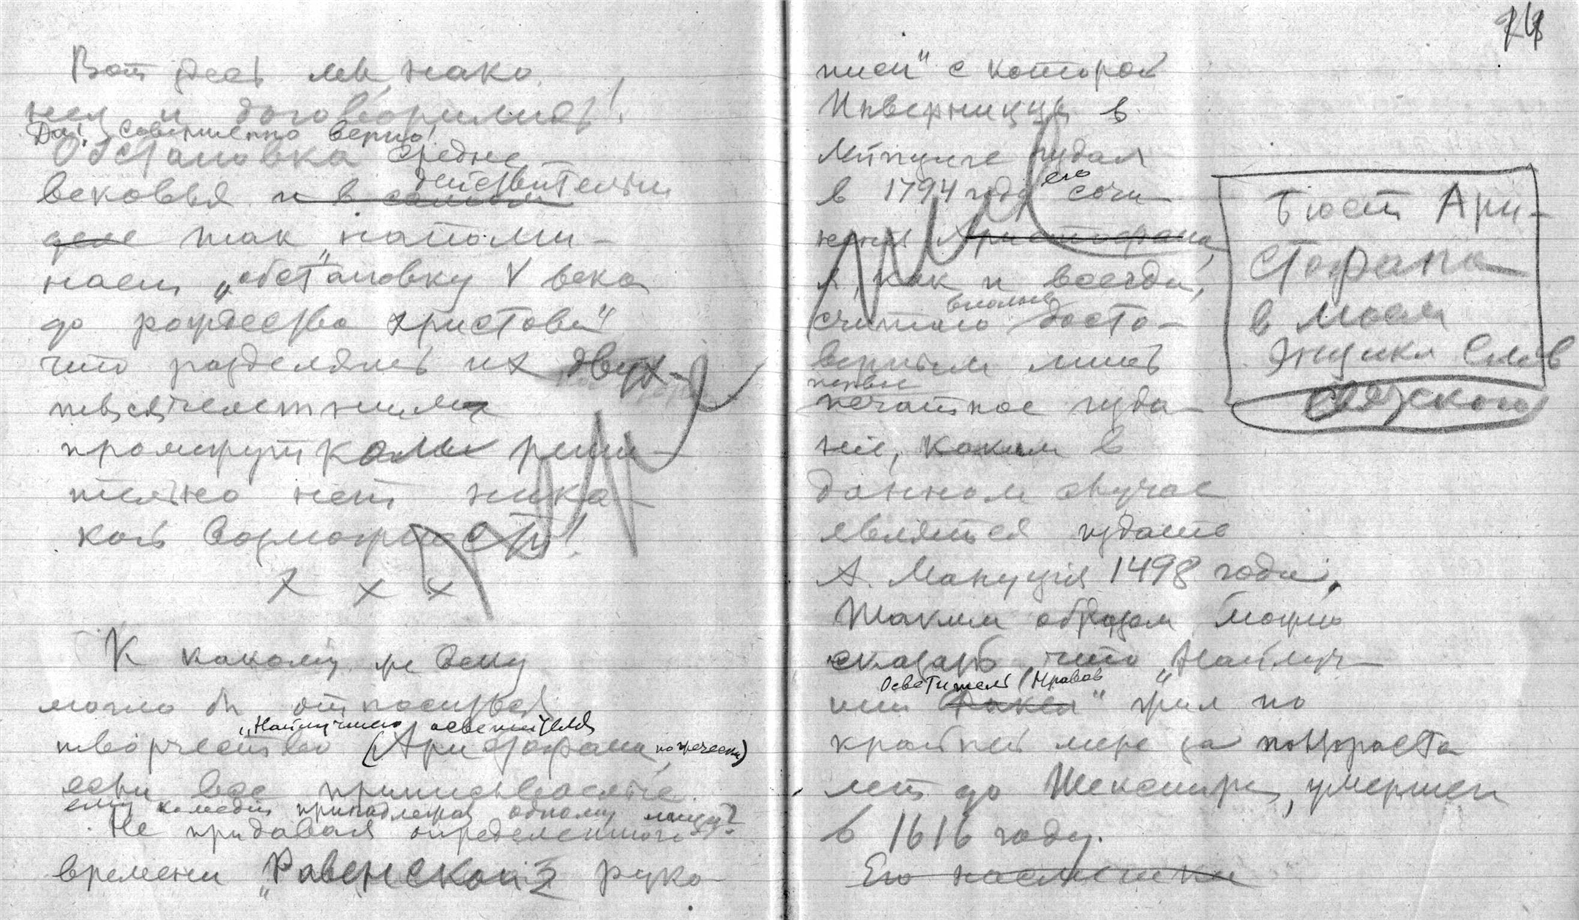 Вот здесь мы нако
нец и договорились!
Да! Совершенно верно!
Обстановка средне
вековья и в самом
действительно
деле так напоми-
нает „обстановку V века
до рождества христова"
что разделять их двух-
тысячелетними
промежутками реши-
тельно нет ника-
кой возможности!
х х х
К какому же веку
могло бы относиться
„Наилучшего осветителя
творчество (Аристофана, по гречески)
если все приписываемые
ему комедии принадлежат одному лицу?
Не придавая определенного
времени „Равенской руко
писи" с которой
Инверницци в
издал
в 1794 году его сочи-
нения Аристофана,
я, как и всегда,
вполне
считаю досто-
верным лишь
первое
печатное изда-
ние, каким в
данном случае
является издание
А. Мануция 1498 года.
Таким образом можно
сказать что „Наилуч-
Осветитель Нравов
ший " жил по
крайней мере за полтораста
лет до Шекспира, умершего
в 1616 году.
Его насмешки
Бюст Ари-
стофана
в моем
энцикл Слов